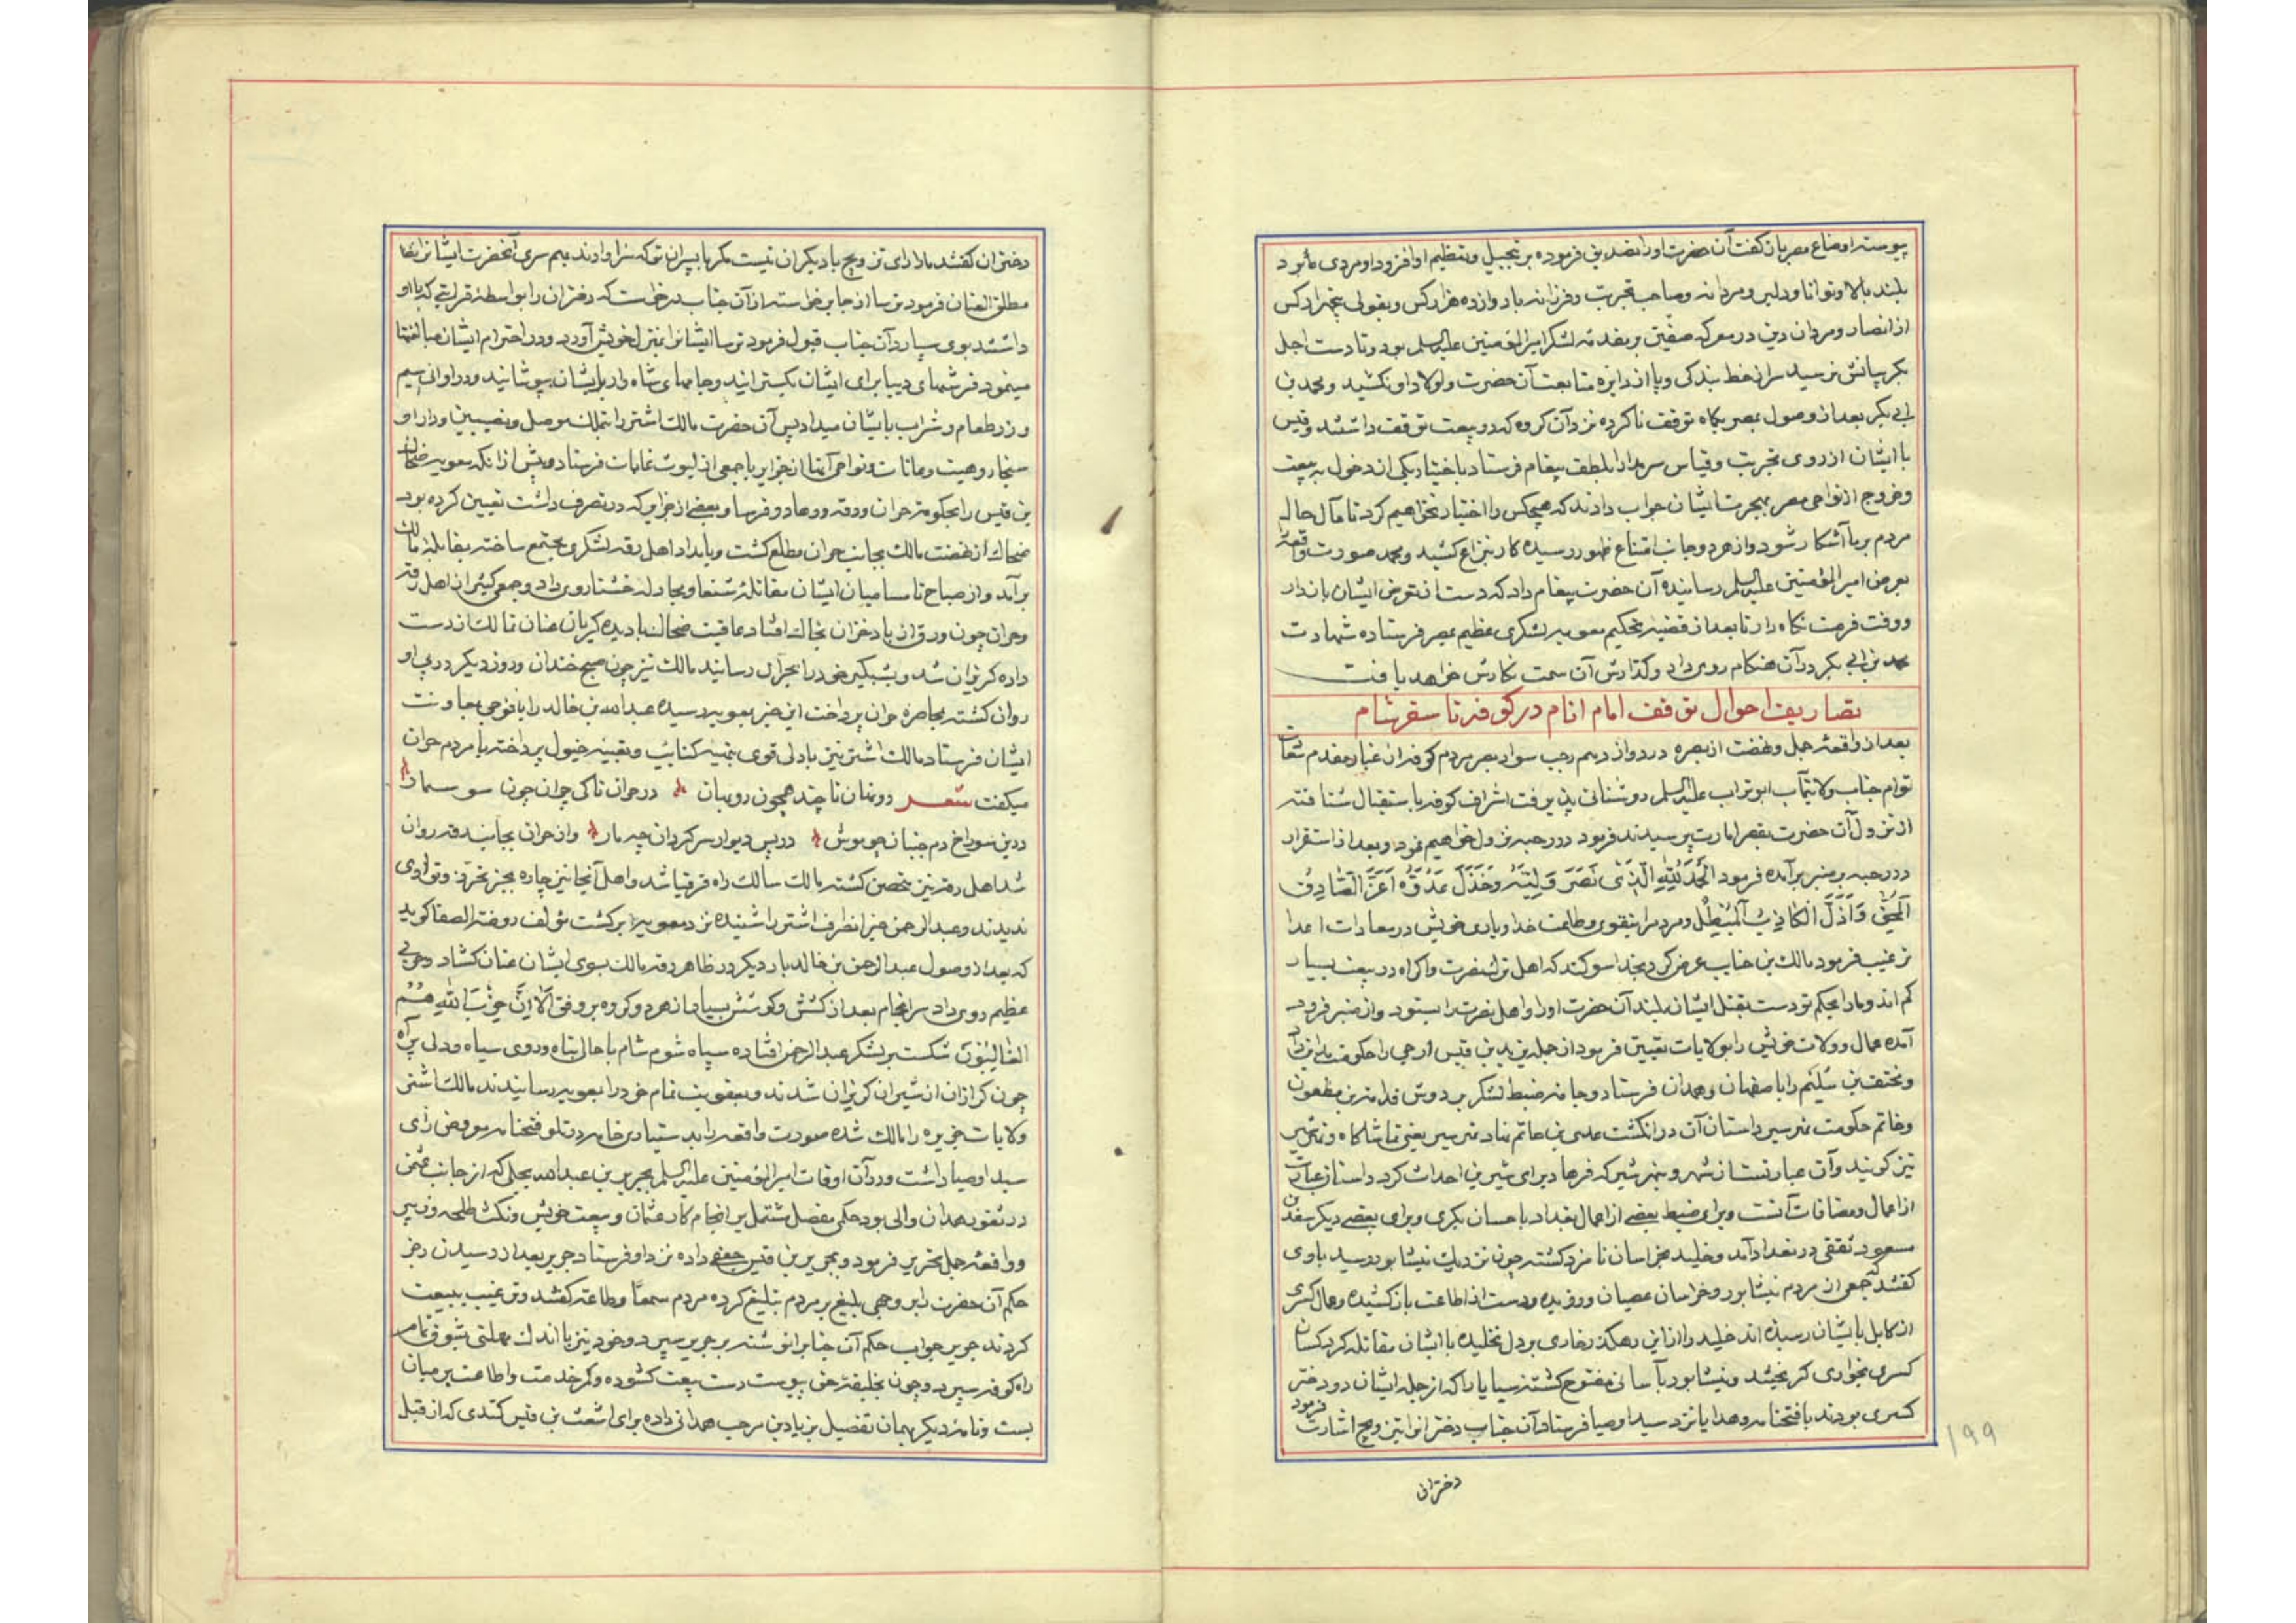 پیوسته اوضاع مصریان گفت آن حضرت اورا تصدیق فرموده بر تبجیل و تعظیم او افزود او مردی مابود
بلند بالا و توانا و دلیر و مردانه و صاحب تجربت و فرزانه با دوازده هزار کس و بقولی پنجهزار کس
از انصار و مردان دین در معرکه صفین بر مقدمه لشکر امیرالمؤمنین علیه السلم بود و تا دست اجل
بکریبانش نرسید سر از خط بندکی و پا از دایره متابعت آن حضرت و اولاد او نکشید و محمد بن
ابی بکر بعد از وصول بمصر یکاه توقف ناکرده نزد آن کروه که در بیعت توقف داشتند و قیس
با ایشان از روی تجربت و قیاس سر مدارا بلطف پیغام فرستاد باختیار یکی از دخول به بیعت
و خروج از نواحی مصر بهجرت ایشان جواب دادند که هیچکس را اختیار نخواهیم کرد تا مآل حال
مردم بر ما آشکار شود و از هر دو جانب امتناع ظهور رسیده کار بنزاع کشید و محمد صورت واقعه
بعرض امیرالمؤمنین علیه السلم رسانیده آن حضرت پیغام داد که دست از تعرض ایشان باز دار
و وقت فرصت نکاه دار تا بعد از قضیه تحکیم معویه لشکری عظیم بمصر فرستاده شهادت
محمد بن ابی بکر در آن هنکام روی داد و کذارش آن سمت نکارش خواهد یافت
تصاریف احوال توقف امام انام در کوفه تا سفر شام
بعد از واقعه جمل و نهضت از بصره در دوازدهم رجب سواد بصر مردم کوفه از غبار مقدم سعادت
توام جناب ولایتمآب ابوتراب علیه السلم روشنائی پذیرفت اشراف کوفه باستقبال شتافته
از نزول آن حضرت بقصر امارت پرسیدند فرمود در رحبه نزول خواهیم نمود و بعد از استقرار
در رحبه بر منبر برآمده فرمود الحمد لله الذی نصر ولیته وخذل عدوه اعز الصادق
المحق واذل الکاذب المبطل و مردم را بتقوی و طاعت خدا و یاری خویش در معادات اعدا
ترغیب فرمود مالک بن حبیب عرض کرد بخدا سوکند که اهل ترک نصرت و اکراه در بیعت بسیار
کم اند و مارا بحکم تو دست بقتل ایشان بلند آن حضرت اورا و اهل نصرت را بستود و از منبر فرود
آمده عمال و ولات خویش را بولایات تعیین فرمود از جمله یزید بن قیس ارحبی را حکومت مداین داد
و مخنف بن سلیم را باصفهان و همدان فرستاد و جامه ضبط لشکر بر دوش قدامة بن مظعون
و خاتم حکومت نهرسیر و استان آن در انکشت عدی بن حاتم نهاد نهرسیر یعنی تماشاکاه و نهر شیر
نیز کویند و آن عبارتست از شهر و نهر شیر که فرهاد برای شیرین احداث کرد و استان عبارت
از اعمال و مضافات آنست و برای ضبط بعضی از اعمال بغداد با حسان بکری و برای بعضی دیکر سعد بن
مسعود ثقفی در تعداد آمد و خلید بخراسان نامزد کشته چون نزدیک نیشابور رسید با وی
کفتند که جمعی از مردم نیشابور و خراسان عصیان ورزیده و دست از اطاعت باز کشیده و عمال کسری
از کابل بایشان رسیده اند خلید را از این رهکذر خاری بر دل نخلیده با ایشان مقاتله کرد کسان
کسری بخواری کریختند و نیشابور بآسانی مفتوح کشته سبایا را که از جمله ایشان دو دختر
کسری بودند با فتحنامه و هدایا نزد سید اوصیا فرستاد آن جناب دختران را بتزویج اشارت فرمود
دختران
۱۹۹
دختران کفتند مارا رای تزویج با دیکران نیست مکر با پسران تو که سزاوارند بهم سری آنحضرت ایشان را
مطلق العنان فرمود نرسا از جا برخواسته از آن جناب درخواست که دختران را بواسطه قرابتی که با او
داشتند بوی سپارد آن جناب قبول فرمود نرسا ایشان را بمنزل خویش آورد و در احترام ایشان مبالغتها
مینمود فرشهای دیبا برای ایشان بکسترانید و جامهای شاه وار بایشان بپوشانید و در اوانی سیم
و زر طعام و شراب بایشان میداد پس آن حضرت مالک اشتر را بتملک موصل و نصیبین و دارا و
سنجار و هیت و عانات و نواحی آنها از جزایر با جمعی از لیوث غابات فرستاد و پیش از آنکه معویه ضحاک
بن قیس را بحکومت حران و رقه و رها و قرقسا و بعضی از جزایر که در تصرف داشت تعیین کرده بود
ضحاک از نهضت مالک بجانب حران مطلع کشت و بامداد اهل رقه لشکری مجتمع ساخته بمقابله مالک
برآمد و از صباح تا مسا میان ایشان مقاتله شنعا و مجادله خشنا روی داد و جمعی کثیر از اهل رقه
و حران چون ورق از باد خزان بخاک افتاد عاقبت ضحاک با دیده کریان عنان تمالک از دست
داده کریزان شد و بشبکیر خود را بحران رسانید مالک نیز چون صبح خندان و روز دیکر در پی او
روان کشته بمحاصره حران پرداخت این خبر بمعویه رسیده عبدالرحمن بن خالد را با فوجی بمعاونت
ایشان فرستاد مالک اشتر نیز با دلی قوی بتهیه کتایب و تعبیه خیول پرداخته با مردم حران
میکفت شعر دونان تا چند همچون روبهان در حران تاکی چران چون سوسمار
در بن سوراخ دم جنبان چو موش در پس دیوار سر کردان چه مار و از حران بجانب رقه روان
شد اهل رقه نیز متحصن کشته مالک سالک راه قرقیا شد و اهل آنجا نیز چاره بجز تحرز و تواری
ندیدند و عبدالرحمن خبر انصراف اشتر را شنیده نزد معویه برکشت مؤلف روضة الصفا کوید
که بعد از وصول عبدالرحمن بن خالد بار دیکر در ظاهر رقه مالک بسوی ایشان عنان کشاد و حربی
عظیم روی داد سرانجام بعد از کشش و کوشش بسیار از هر دو کروه بر وفق الا ان حزب الله هم
الغالبون شکست بر لشکر عبدالرحمن افتاده سپاه شوم شام با حال تباه و روی سیاه و دلی پر آه
چون کرازان از شیران کریزان شدند و بعقوبت تمام خود را بمعویه رسانیدند مالک اشتر
ولایات جزیره را مالک شده صورت واقعه را بدستیاری خامه در تلو فتحنامه معروض رای
سید اوصیا داشت و در آن اوقات امیرالمؤمنین علیه السلم بجریر بن عبدالله بجلی که از جانب عثمن
در ثغور همدان والی بود حکمی مفصل مشتمل بر انجام کار عثمان و بیعت خویش و نکث طلحه و زبیر
و واقعه جمل تحریر فرمود و بحریر بن قیس جعفی داده نزد او فرستاد جریر بعد از رسیدن زحر
حکم آن حضرت را بر وجهی بلیغ بر مردم تبلیغ کرده مردم سمعا و طاعة کفتند و ترغیب ببیعت
کردند جریر جواب حکم آن جناب را نوشته بر جریر سپرد و خود نیز با اندک مهلتی بشوق تمام
راه کوفه سپرد و چون بخلیفه حق پیوست دست بیعت کشوده و کمر خدمت و اطاعت بر میان
بست و نامه دیکر بهمان تفصیل بزیاد بن مرحب همدانی داده برای اشعث بن قیس کندی که از قبل